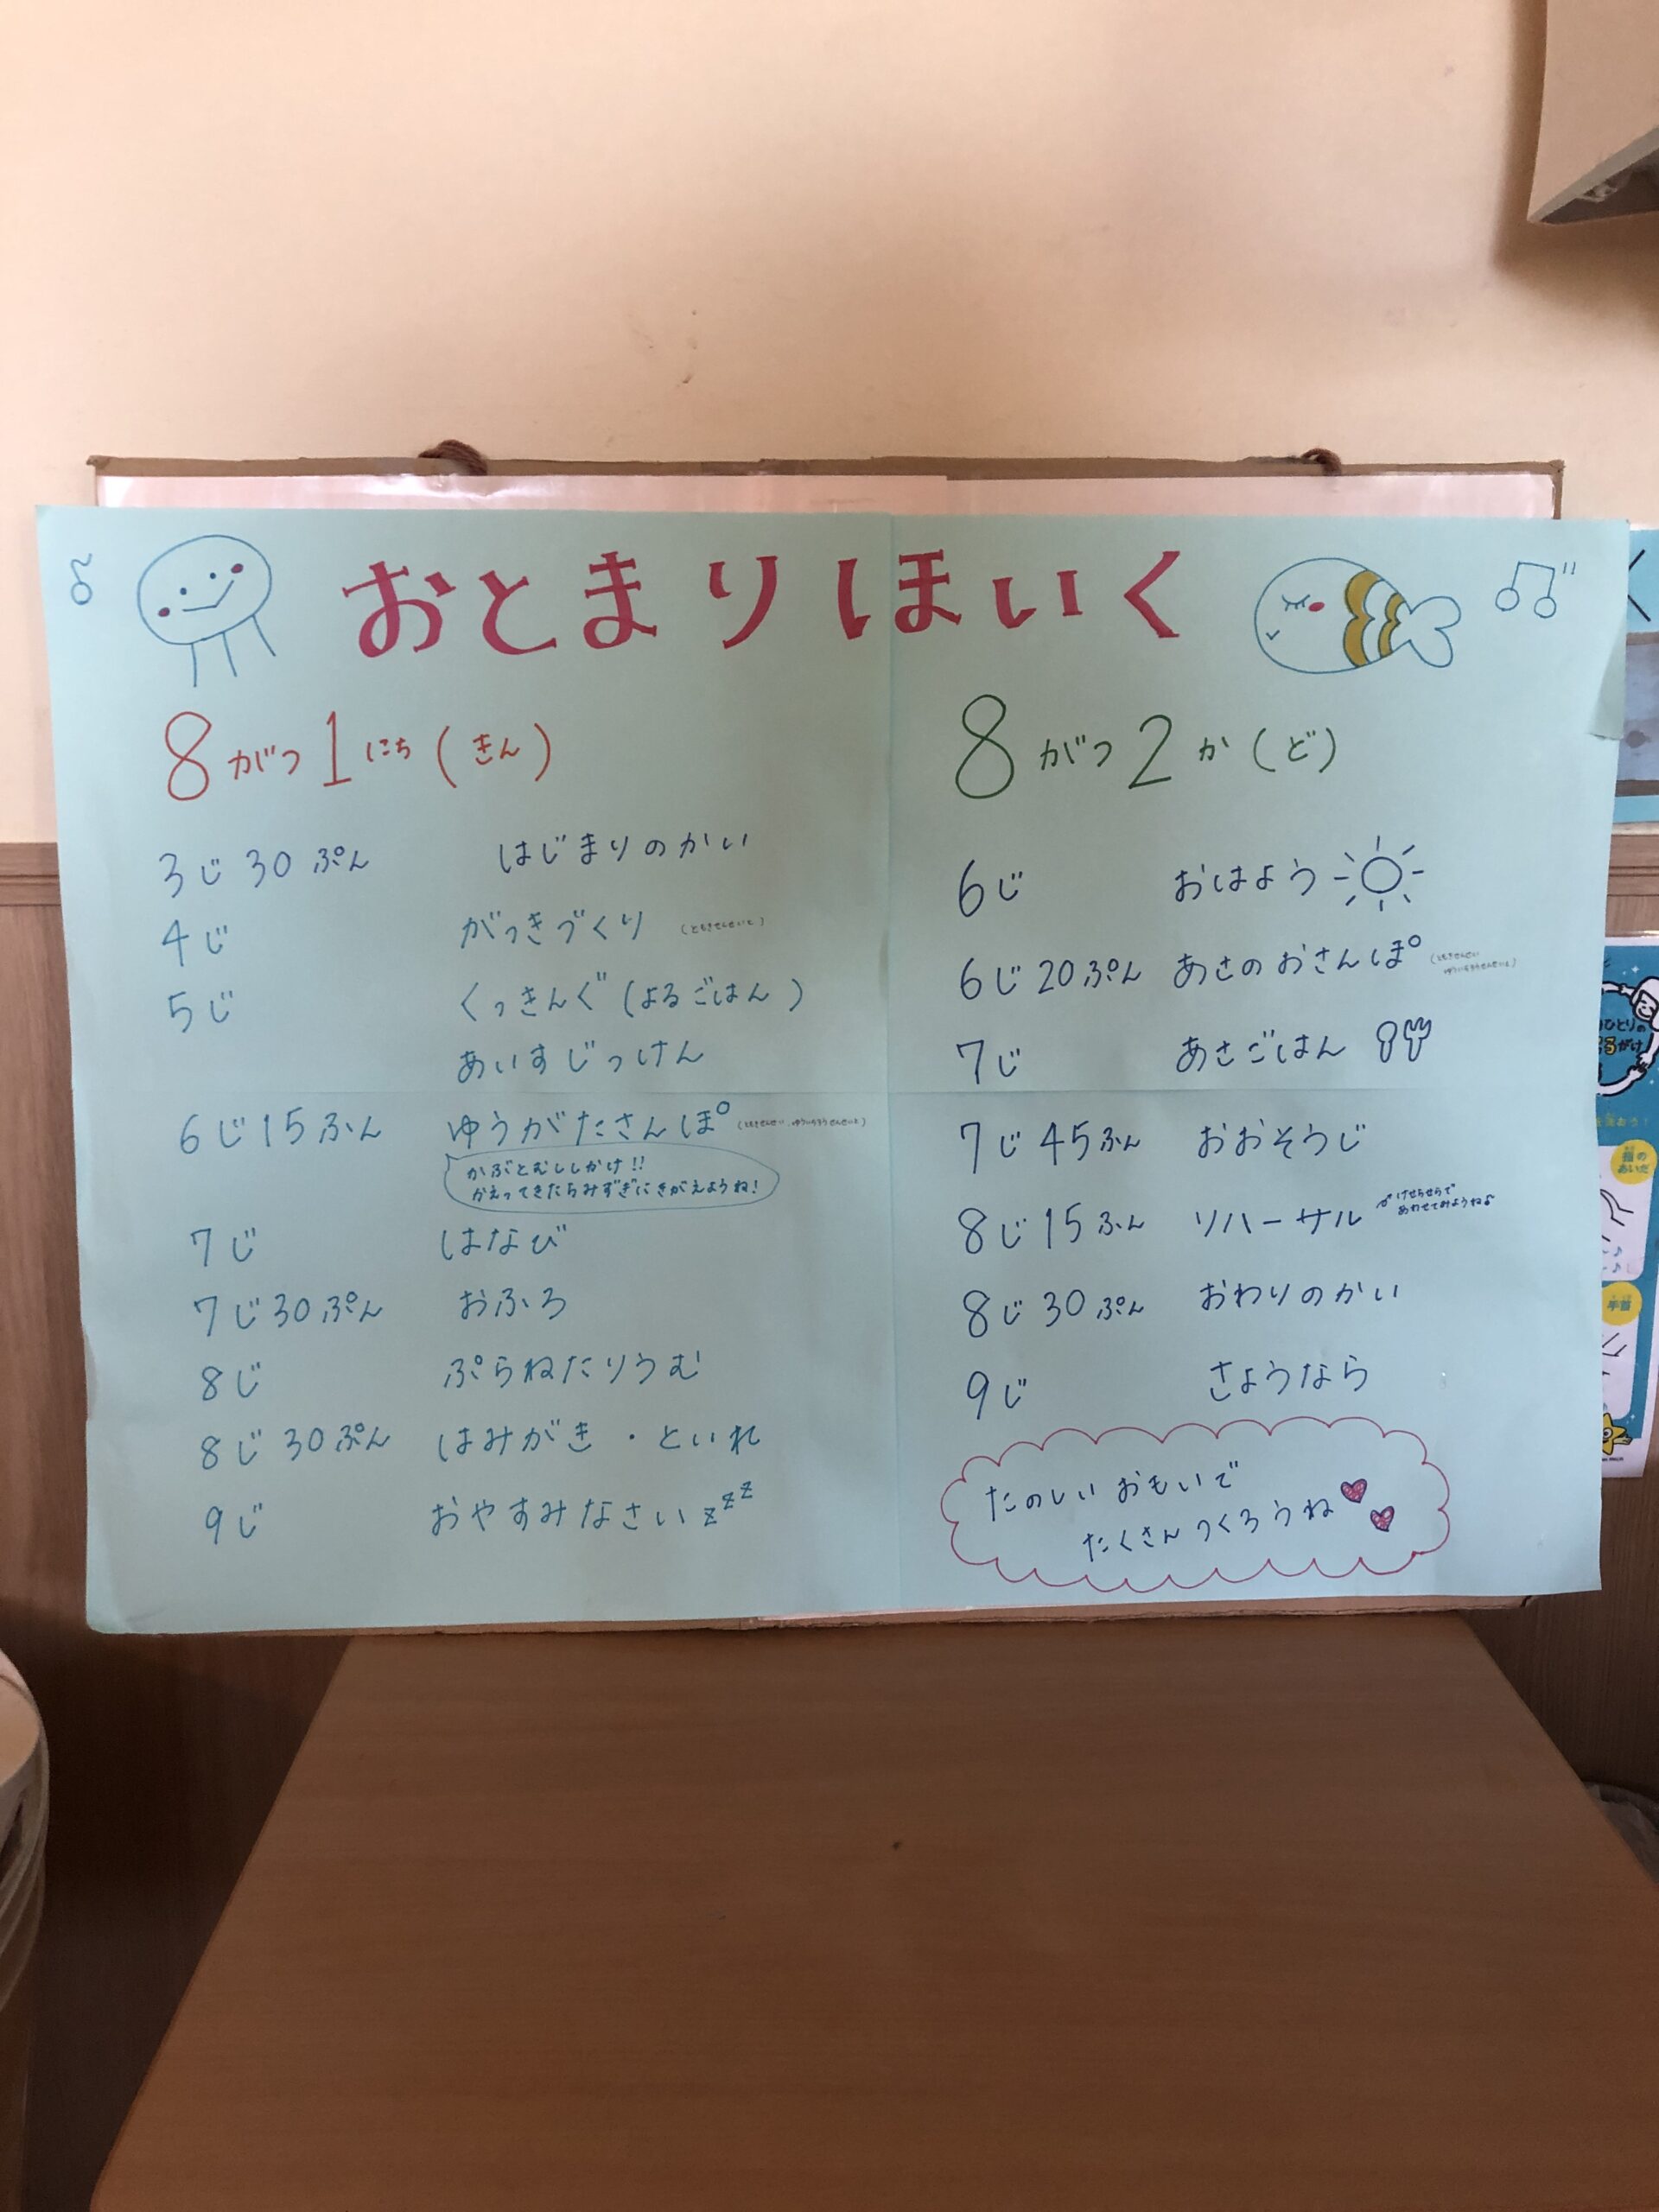 おとまりほいく
8がつ1にち(きん)
3じ30ぷん はじまりのかい
4じ がっきづくり (ともきせんせいと)
5じ くっきんぐ(よるごはん)
あいすじっけん
6じ15ふん ゆうがたさんぽ (ともきせんせい、ゆういちろうせんせいと)
かぶとむししかけ!!
かえってきたらみずぎにきがえようね!
7じ はなび
7じ30ぷん おふろ
8じ ぷらねたりうむ
8じ30ぷん はみがき・といれ
9じ おやすみなさいzzz
8がつ2か(ど)
6じ おはよう
6じ20ぷん あさのおさんぽ (ともきせんせい
ゆういちろうせんせいと)
7じ あさごはん
7じ45ふん おおそうじ
8じ15ふん リハーサル
けせらせらで
あわせてみようね♪
8じ30ぷん おわりのかい
9じ さようなら
たのしいおもいで
たくさんつくろうね
手首